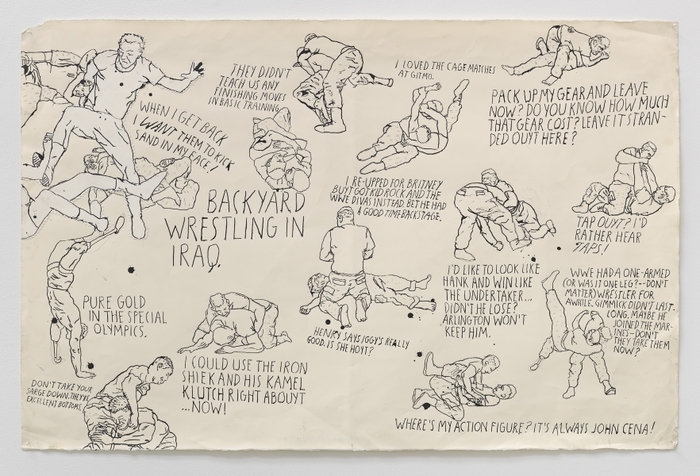 THEY DIDN'T
TEACH US ANY
FINISHING MOVES
IN BASIC TRAINING.
I LOVED THE CAGE MATCHES
AT GITMO.
PACK UP MY GEAR AND LEAVE
NOW? DO YOU KNOW HOW MUCH
THAT GEAR COST? LEAVE IT STRAN-
DED OUYT HERE?
WHEN I GET BACK
I WANT THEM TO KICK
SAND IN MY FACE!
BACKYARD
WRESTLING IN
IRAQ.
I RE-UPPED FOR BRITNEY
BUYT GOT KID ROCK AND THE
WWE DIVAS INSTEAD. BET HE HAD
A GOOD TIME BACKSTAGE.
TAP OUYT? I'D
RATHER HEAR
TAPS!
PURE GOLD
IN THE SPECIAL
OLYMPICS.
I'D LIKE TO LOOK LIKE
HANK AND WIN LIKE
THE UNDERTAKER...
DIDN'T HE LOSE?
ARLINGTON WON'T
KEEP HIM.
WWE HAD A ONE-ARMED
(OR WAS IT ONE LEG?--DON'T
MATTER) WRESTLER FOR
AWHILE. GIMMICK DIDN'T LAST
LONG. MAYBE HE
JOINED THE MAR-
INES--DON'T
THEY TAKE THEM
NOW?
HENRY SAYS IGGY'S REALLY
GOOD. IS SHE HOYT?
I COULD USE THE IRON
SHIEK AND HIS KAMEL
KLUTCH RIGHT ABOUYT
...NOW!
DON'T TAKE YOUR
SARGE DOWN. THEY'RE
EXCELLENT BOTTOMS.
WHERE'S MY ACTION FIGURE? IT'S ALWAYS JOHN CENA!